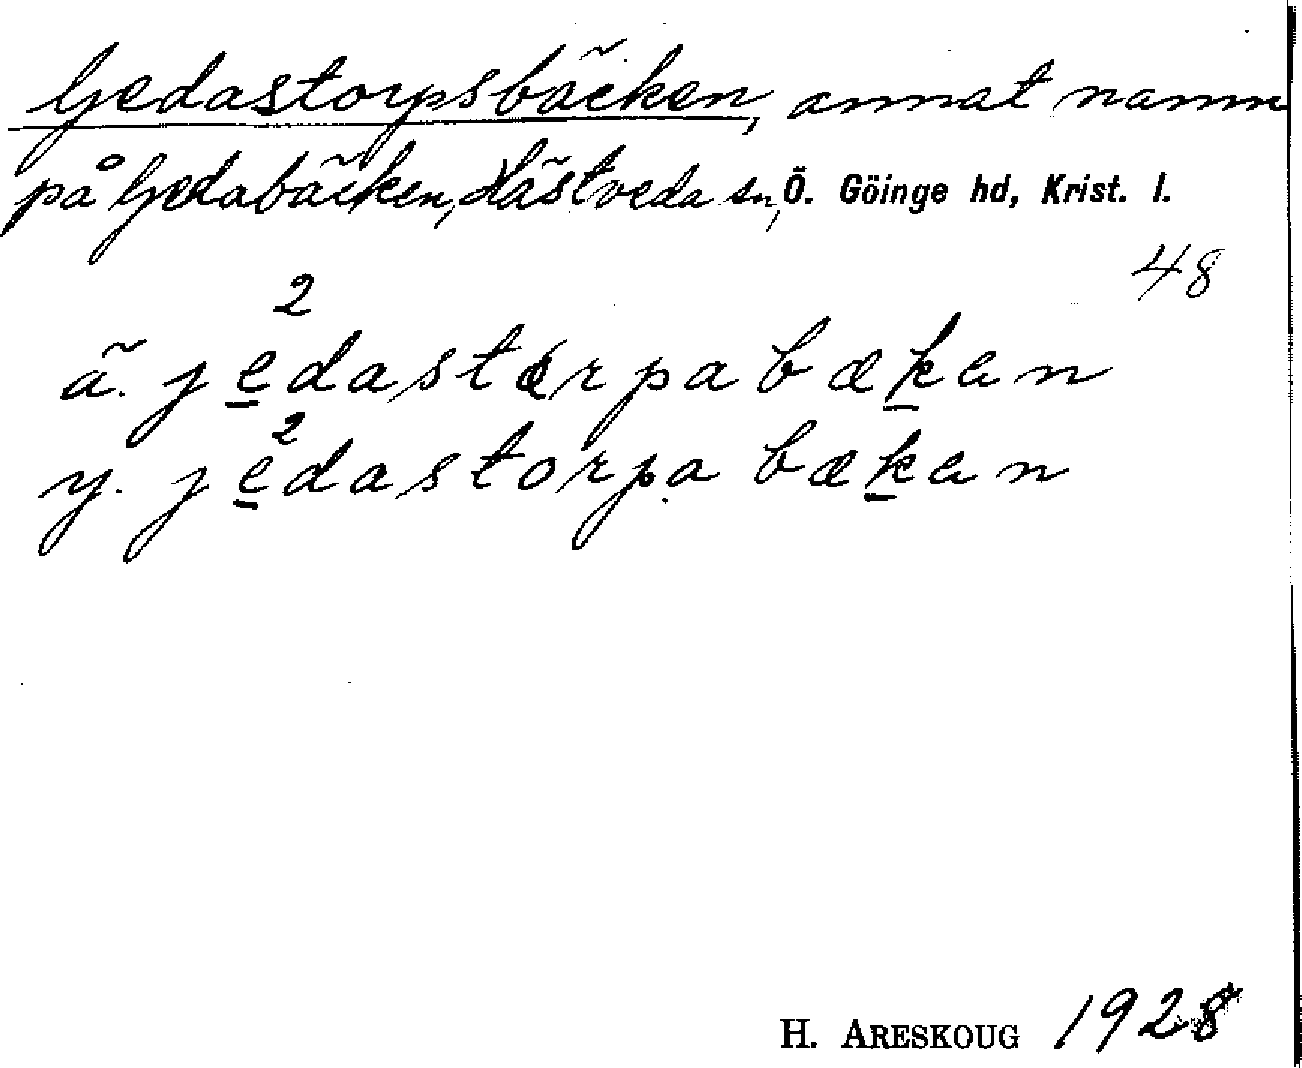 Gedastorpsbäcken, annat namn
på Gedabäcken, Hästveda sn, Ö. Göinge hd, Krist. l.
48
2
ä. jedastorpabækan
2
y. jedastorpa bækan
H. ARESKOUG 1928